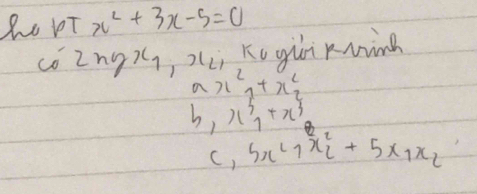 ho PT x² + 3x - 5 = 0
có 2 ng x₁, x₂, Ko giải p trình
a x₁² + x₂²
b, x₁³ + x³
c, 5x²₁ x²₂ + 5x₁x₂